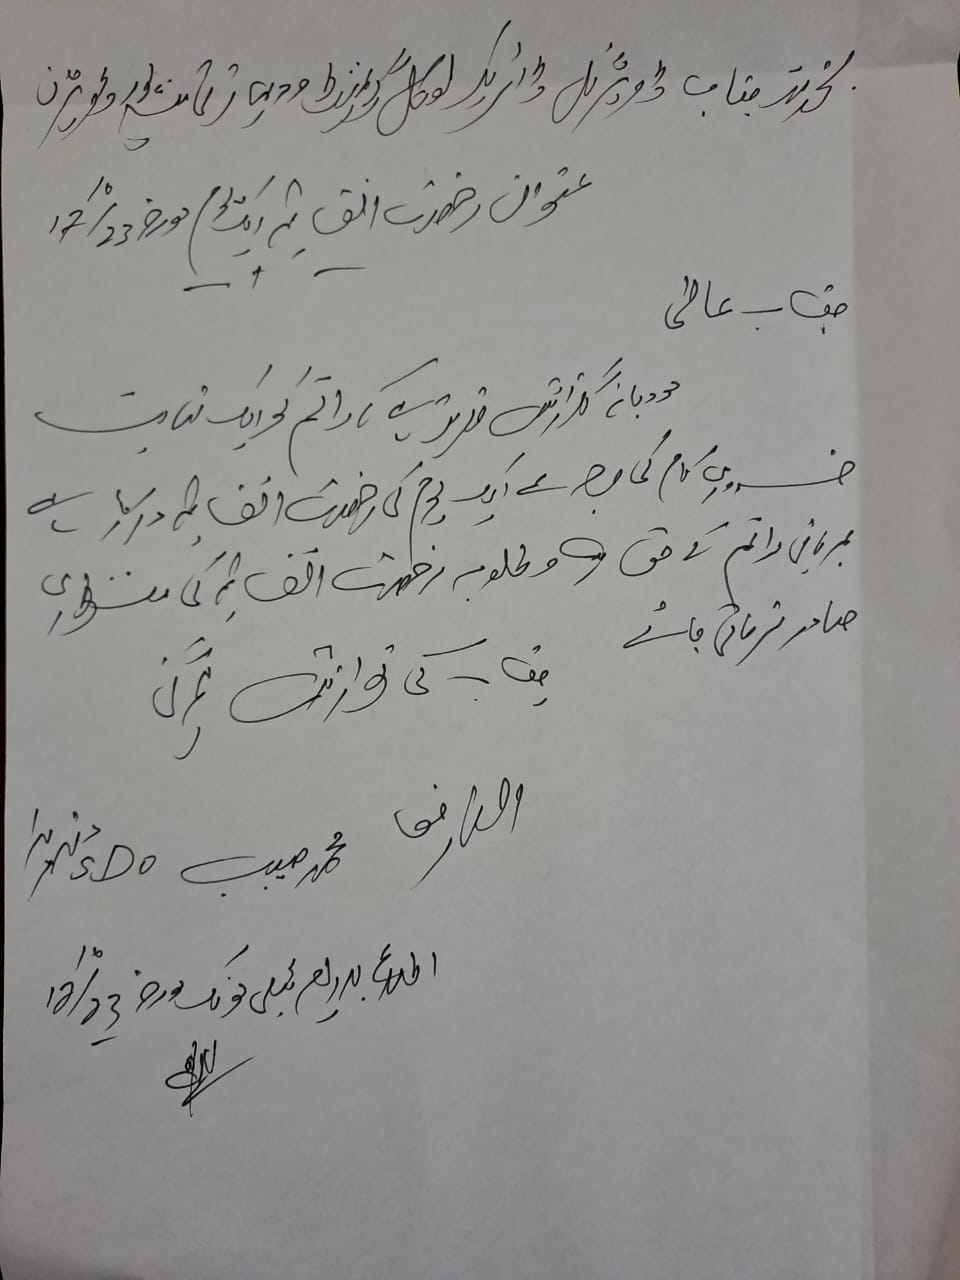 بخدمت جناب ڈویژنل ڈائریکٹر لوکل گورنمنٹ و دیہی ترقی ڈویژن
عنوان رخصت اتفاقیہ ایک یوم مورخہ 17/10/23
جناب عالی
مودبانہ گزارش خدمت ہے کہ راقم کو ایک نہایت
ضروری کام کی وجہ سے ایک یوم کی رخصت اتفاقیہ درکار ہے
مہربانی راقم کے حق میں مطلوبہ رخصت اتفاقیہ کی منظوری
صادر فرمائی جائے
جناب کی نوازش ہوگی
العارض
محمد حبیب SDO دفتر ہذا
اطلاع بذریعہ ٹیلی فونک مورخہ 17/10/23